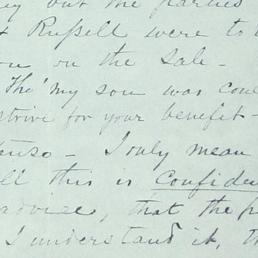 out the parties
Russell were to
on the Sale -
Tho' my son was
strive for your benefit -
- I only mean
this is
advice, that the
I understand it,